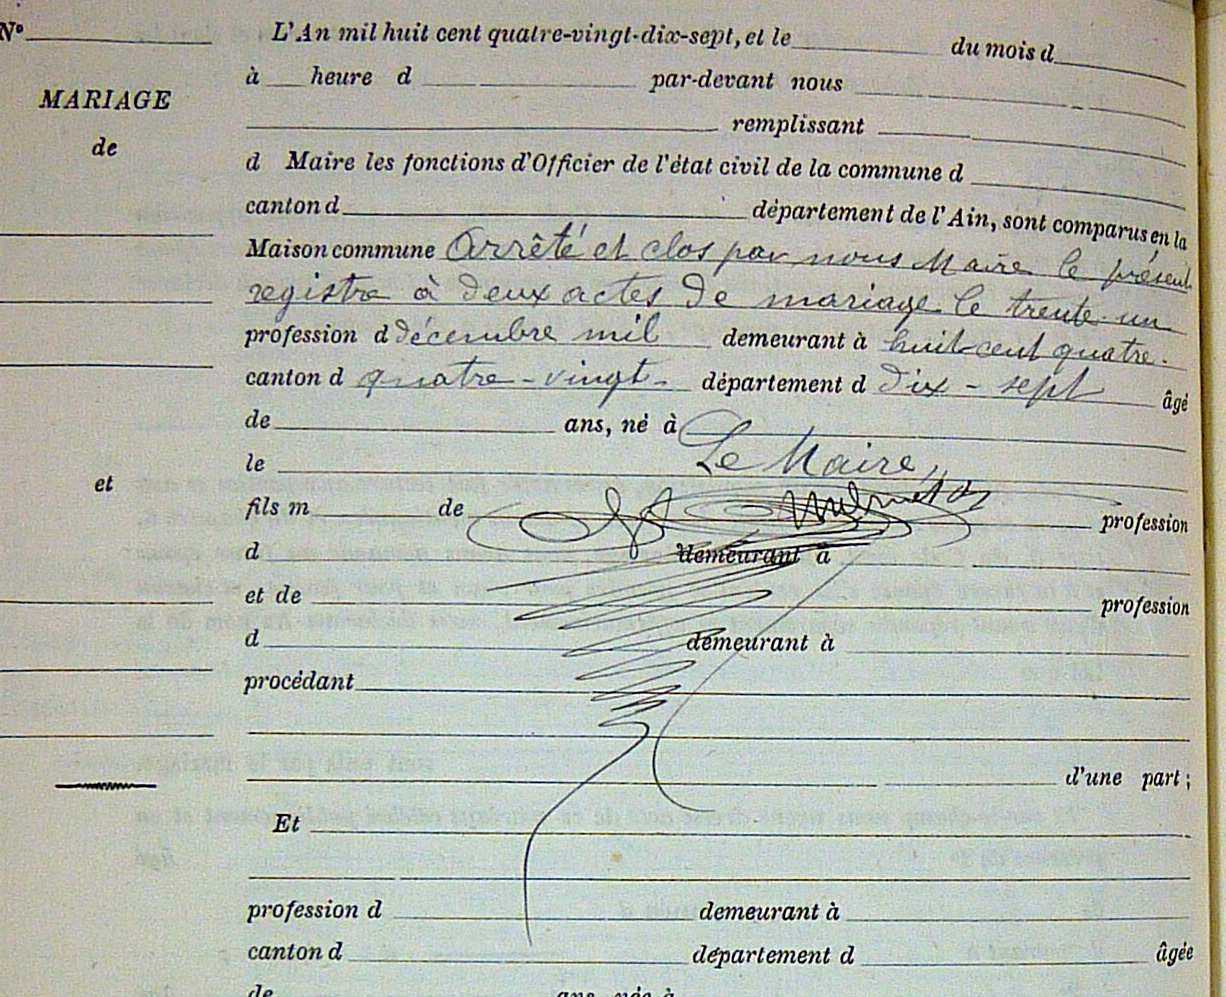 N°
L'An mil huit cent quatre-vingt-dix-sept, et le du mois d
à heure d par-devant nous
MARIAGE
remplissant
de
d Maire les fonctions d'Officier de l'état civil de la commune d
canton d département de l'Ain, sont comparus en la
Maison commune Arrêté et clos par nous Maire le présent
registre à deux actes de mariage le trente-un
profession d décembre mil demeurant à huit cent quatre-
canton d quatre-vingt- département d dix-sept âgé
de ans, né à
le Le Maire,
et
fils m de profession
d demeurant à
et de profession
d demeurant à
procédant
d'une part;
Et
profession d demeurant à
canton d département d âgée
de ans, née à